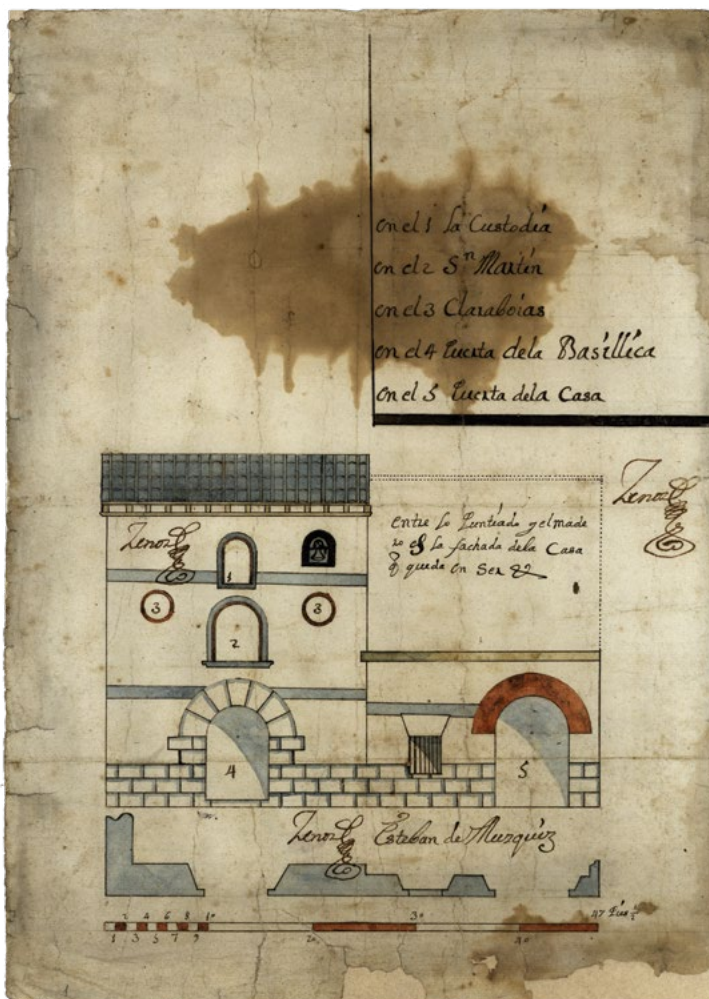 en el 1 La Custodia
en el 2 Sn Martin
en el 3 Claraboias
en el 4 Puerta dela Basillica
en el 5 Puerta dela Casa
Zenoz
entre lo Punteado y el made
ro es La fachada dela Casa
q queda en Ser
Zenoz
1
3
3
2
4
5
Zenoz Esteban de Muzquiz
2 4 6 8 10 30 47 Pies ½
1 3 5 7 9 20 40